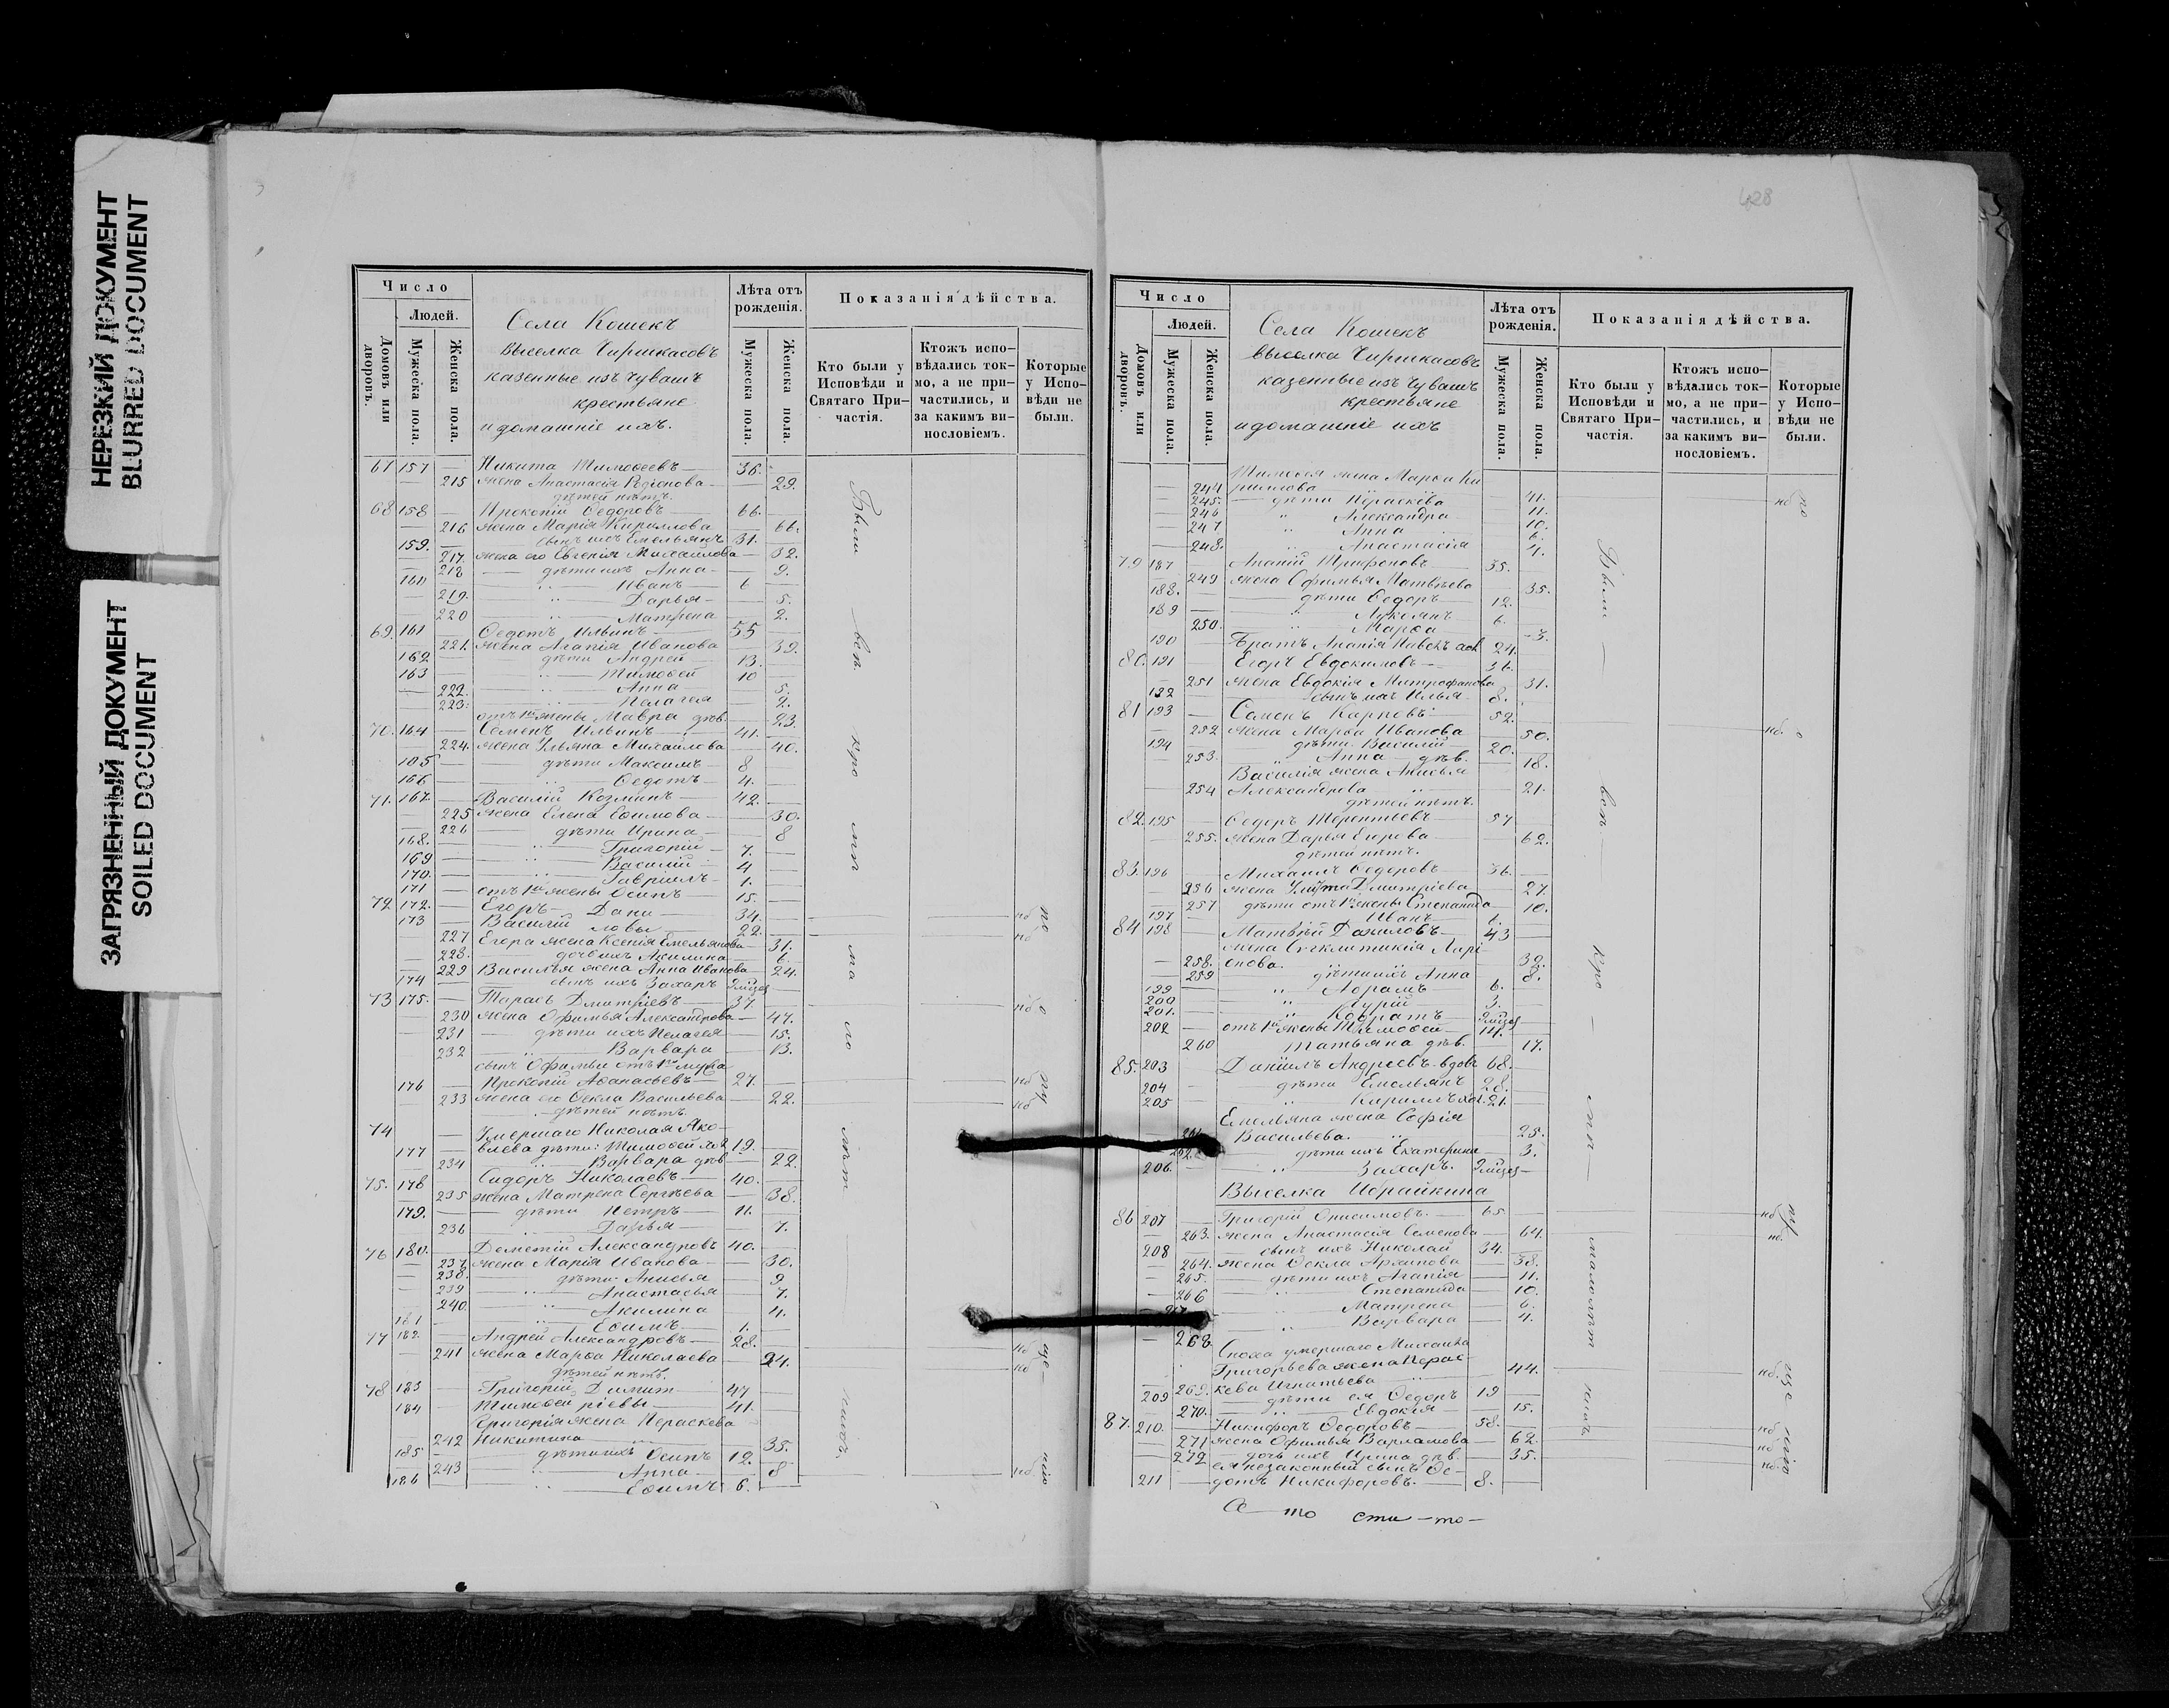 НЕРЕЗКИЙ ДОКУМЕНТ
BLURRED DOCUMENT
ЗАГРЯЗНЕННЫЙ ДОКУМЕНТ
SOILED DOCUMENT
Число
Людей.
Домовъ или дворовъ.
Мужеска пола.
Женска пола.
Села Кошекъ
Выселка Чиршкасовъ
казенные изъ чувашъ
крестьяне
и домашніе ихъ.
Лѣта отъ рожденія.
Мужеска пола.
Женска пола.
Показанія дѣйства.
Кто были у Исповѣди и Святаго Причастія.
Ктожъ исповѣдались токмо, а не причастились, и за какимъ винословіемъ.
Которые у Исповѣди не были.
67 157 Никита Тимоѳеевъ 36.
215 жена Анастасія Родіонова 29.
дѣтей нѣтъ.
68 158 Прокопій Ѳедоровъ 66.
216 жена Марія Кириллова 66.
159. сынъ ихъ Емельянъ 31.
217. жена его Евгенія Михайлова 32.
218 дѣти ихъ Анна 9.
160 Иванъ 6
219. Дарья 5.
220 Матрена 2.
69. 161 Ѳедотъ Ильинъ 55
221. жена Агапія Иванова 39.
162. дѣти Андрей 13.
163 Тимоѳей 10
222. Анна 5.
223. Пелагея 2.
отъ 1й жены Мавра дѣв. 23.
70. 164 Семенъ Ильинъ 41.
224. жена Ульяна Михайлова 40.
165 дѣти Максимъ 8
166 Ѳедотъ 4.
71. 167. Василій Козминъ 42.
225 жена Елена Ефимова 30.
226 дѣти Ирина 8
168. Григорій 7.
169 Василій 4
170. Гавріилъ 1.
171 отъ 1й жены Осипъ 15.
72 172. Егоръ Дани 34.
173 Василій ловы 22.
227 Егора жена Ксенія Емельянова 31.
228. дочь ихъ Акилина 6.
229 Василья жена Анна Иванова 24.
174 сынъ ихъ Захаръ
73 175. Тарасъ Дмитріевъ 37.
230 жена Офимья Александрова 47.
231 дѣти ихъ Пелагея 15.
232 Варвара 13.
сынъ Офимьи отъ 1го мужа
176 Прокопій Аѳанасьевъ 27.
233 жена его Ѳекла Васильева 22.
дѣтей нѣтъ.
74 Умершаго Николая Яко
177 влева дѣти: Тимоѳей хол. 19.
234 Варвара дѣв. 22.
75. 178 Сидоръ Николаевъ 40.
235 жена Матрена Сергѣева 38.
179. дѣти Петръ 11.
236 Дарья 7.
76 180. Дементій Александровъ 40.
237 жена Марія Иванова 30.
238. дѣти Анисья 9
239 Анастасья 7.
240. Акилина 4.
181 Ефимъ 1.
77 182. Андрей Александровъ 28.
241 жена Марѳа Николаева 24.
дѣтей нѣтъ.
78 183 Григорій Димит 47
184 Тимоѳей ріевы 41.
Григорія жена Параскева
242 Никитина 35.
185 дѣти ихъ Осипъ 12.
243 Анна 8
186 Ефимъ 6.
428
Число
Людей.
Домовъ или дворовъ.
Мужеска пола.
Женска пола.
Села Кошекъ
выселка Чиршкасовъ
казенные изъ чувашъ
крестьяне
и домашніе ихъ
Лѣта отъ рожденія.
Мужеска пола.
Женска пола.
Показанія дѣйства.
Кто были у Исповѣди и Святаго Причастія.
Ктожъ исповѣдались токмо, а не причастились, и за какимъ винословіемъ.
Которые у Исповѣди не были.
Тимоѳея жена Марѳа Ки
244 рилова 41.
245. дѣти Параскева 11.
246 Александра 10.
247 Анна 6.
248. Анастасія 4.
79 187 Ананій Трифоновъ 35.
249 жена Офимья Матвѣева 35.
188. дѣти Ѳедоръ 12.
189 Лукоянъ 6.
250. Марѳа 3.
190 Братъ Ананія Павелъ хол. 24.
80. 191 Егоръ Евдокимовъ 36.
251 жена Евдокія Митрофанова 31.
192 сынъ ихъ Илья 8.
81 193 Семенъ Карповъ 52.
252 жена Марѳа Иванова 50.
194 дѣти Василій 20.
253. Анна дѣв. 18.
Василія жена Анисья
254 Александрова 21.
дѣтей нѣтъ.
82. 195 Ѳедоръ Терентьевъ 57
255. жена Дарья Егорова 62.
дѣтей нѣтъ.
83. 196 Михаилъ Ѳедоровъ 36.
256 жена Улита Дмитріева 27.
257 дѣти отъ 1й жены Степанида 10.
197 Иванъ 1.
84 198 Матвѣй Даниловъ 43
жена Синклитикія Ларі
258. онова 32.
259 дѣти ихъ Анна 8.
199 Абрамъ 6.
200 Гурій 3.
201. Кодратъ
202 отъ 1й жены Тимоѳей 14.
260 Татьяна дѣв. 17.
85. 203 Даніилъ Андреевъ вдовъ 68.
204 дѣти Емельянъ 28.
205 Кириллъ хол. 21.
Емельяна жена Софія
261 Васильева. 25.
262. дѣти ихъ Екатерина 3.
206. Захаръ.
Выселка Ибрайкина
86 207 Григорій Онисимовъ. 65
263. жена Анастасія Семенова 64.
208 сынъ ихъ Николай 34.
264. жена Ѳекла Архипова 38.
265. дѣти ихъ Агапія 11.
266 Степанида 10.
267 Матрена 6.
268 Варвара 4.
Сноха умершаго Михаила
Григорьева жена Парас
269. кева Игнатьева 44.
209 дѣти ея Ѳедоръ 19
270. Евдокія 15.
87. 210. Никифоръ Ѳедоровъ 58.
271 жена Офимья Варламова 62.
272 дочь ихъ Ирина дѣв. 35.
ея незаконный сынъ Ѳе
211 дотъ Никифоровъ. 8.